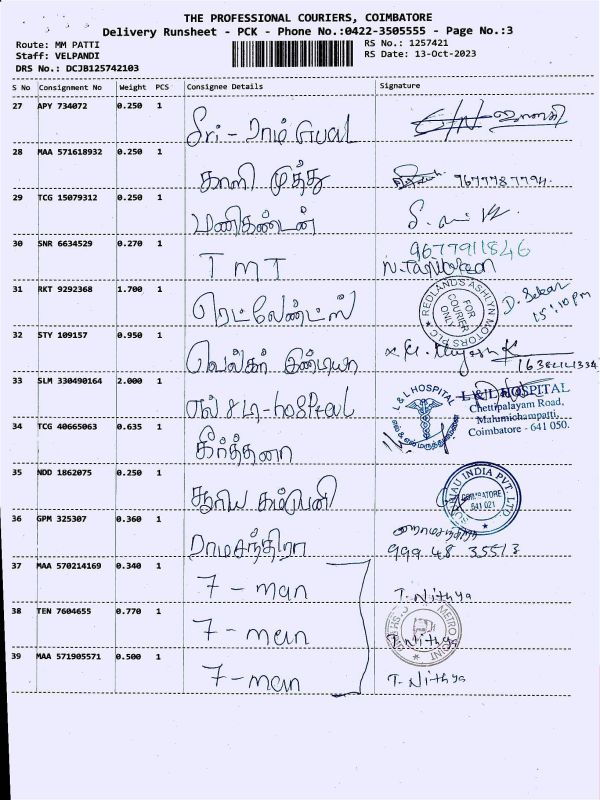 THE PROFESSIONAL COURIERS, COIMBATORE
Delivery Runsheet - PCK - Phone No.:0422-3505555 - Page No.:3
Route: MM PATTI
RS No.: 1257421
Staff: VELPANDI
RS Date: 13-Oct-2023
DRS No.: DCJB125742103
S No Consignment No Weight PCS Consignee Details Signature
27 APY 734072 0.250 1
Sri -
28 MAA 571618932 0.250 1
காளி முத்து
29 TCG 15079312 0.250 1
மணிகண்டன்
30 SNR 6634529 0.270 1
TMT 9677911846
31 RKT 9292368 1.700 1
ரெட்லேண்ட்ஸ்
REDLANDS ASHLYN MOTORS PLC
FOR COURIER ONLY
D. Sekar
15:10pm
32 STY 109157 0.950 1
வெல்கர் இண்டியா
33 SLM 330490164 2.000 1
எல் & எல்-hospital
L & L HOSPITAL
L & L HOSPITAL
Chettipalayam Road,
Malumichampatti,
Coimbatore - 641 050.
34 TCG 40665063 0.635 1
கீர்த்தனா
35 NDD 1862075 0.250 1
சூரிய கம்பெனி
INDIA PVT. LTD
COIMBATORE
641 021
36 GPM 325307 0.360 1
ராமசந்திரா
999 48 35513
37 MAA 570214169 0.340 1
7-man T. Nithya
38 TEN 7604655 0.770 1
7-man T. Nithya
METRO POINT
39 MAA 571905571 0.500 1
7-man T. Nithya